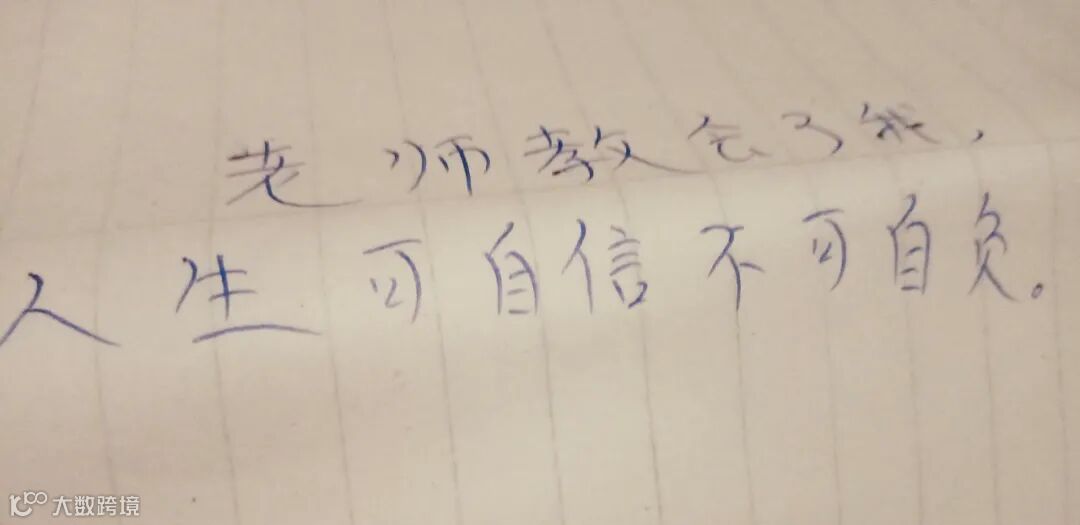 老师教会了我，
人生可自信不可自负。
大数跨境